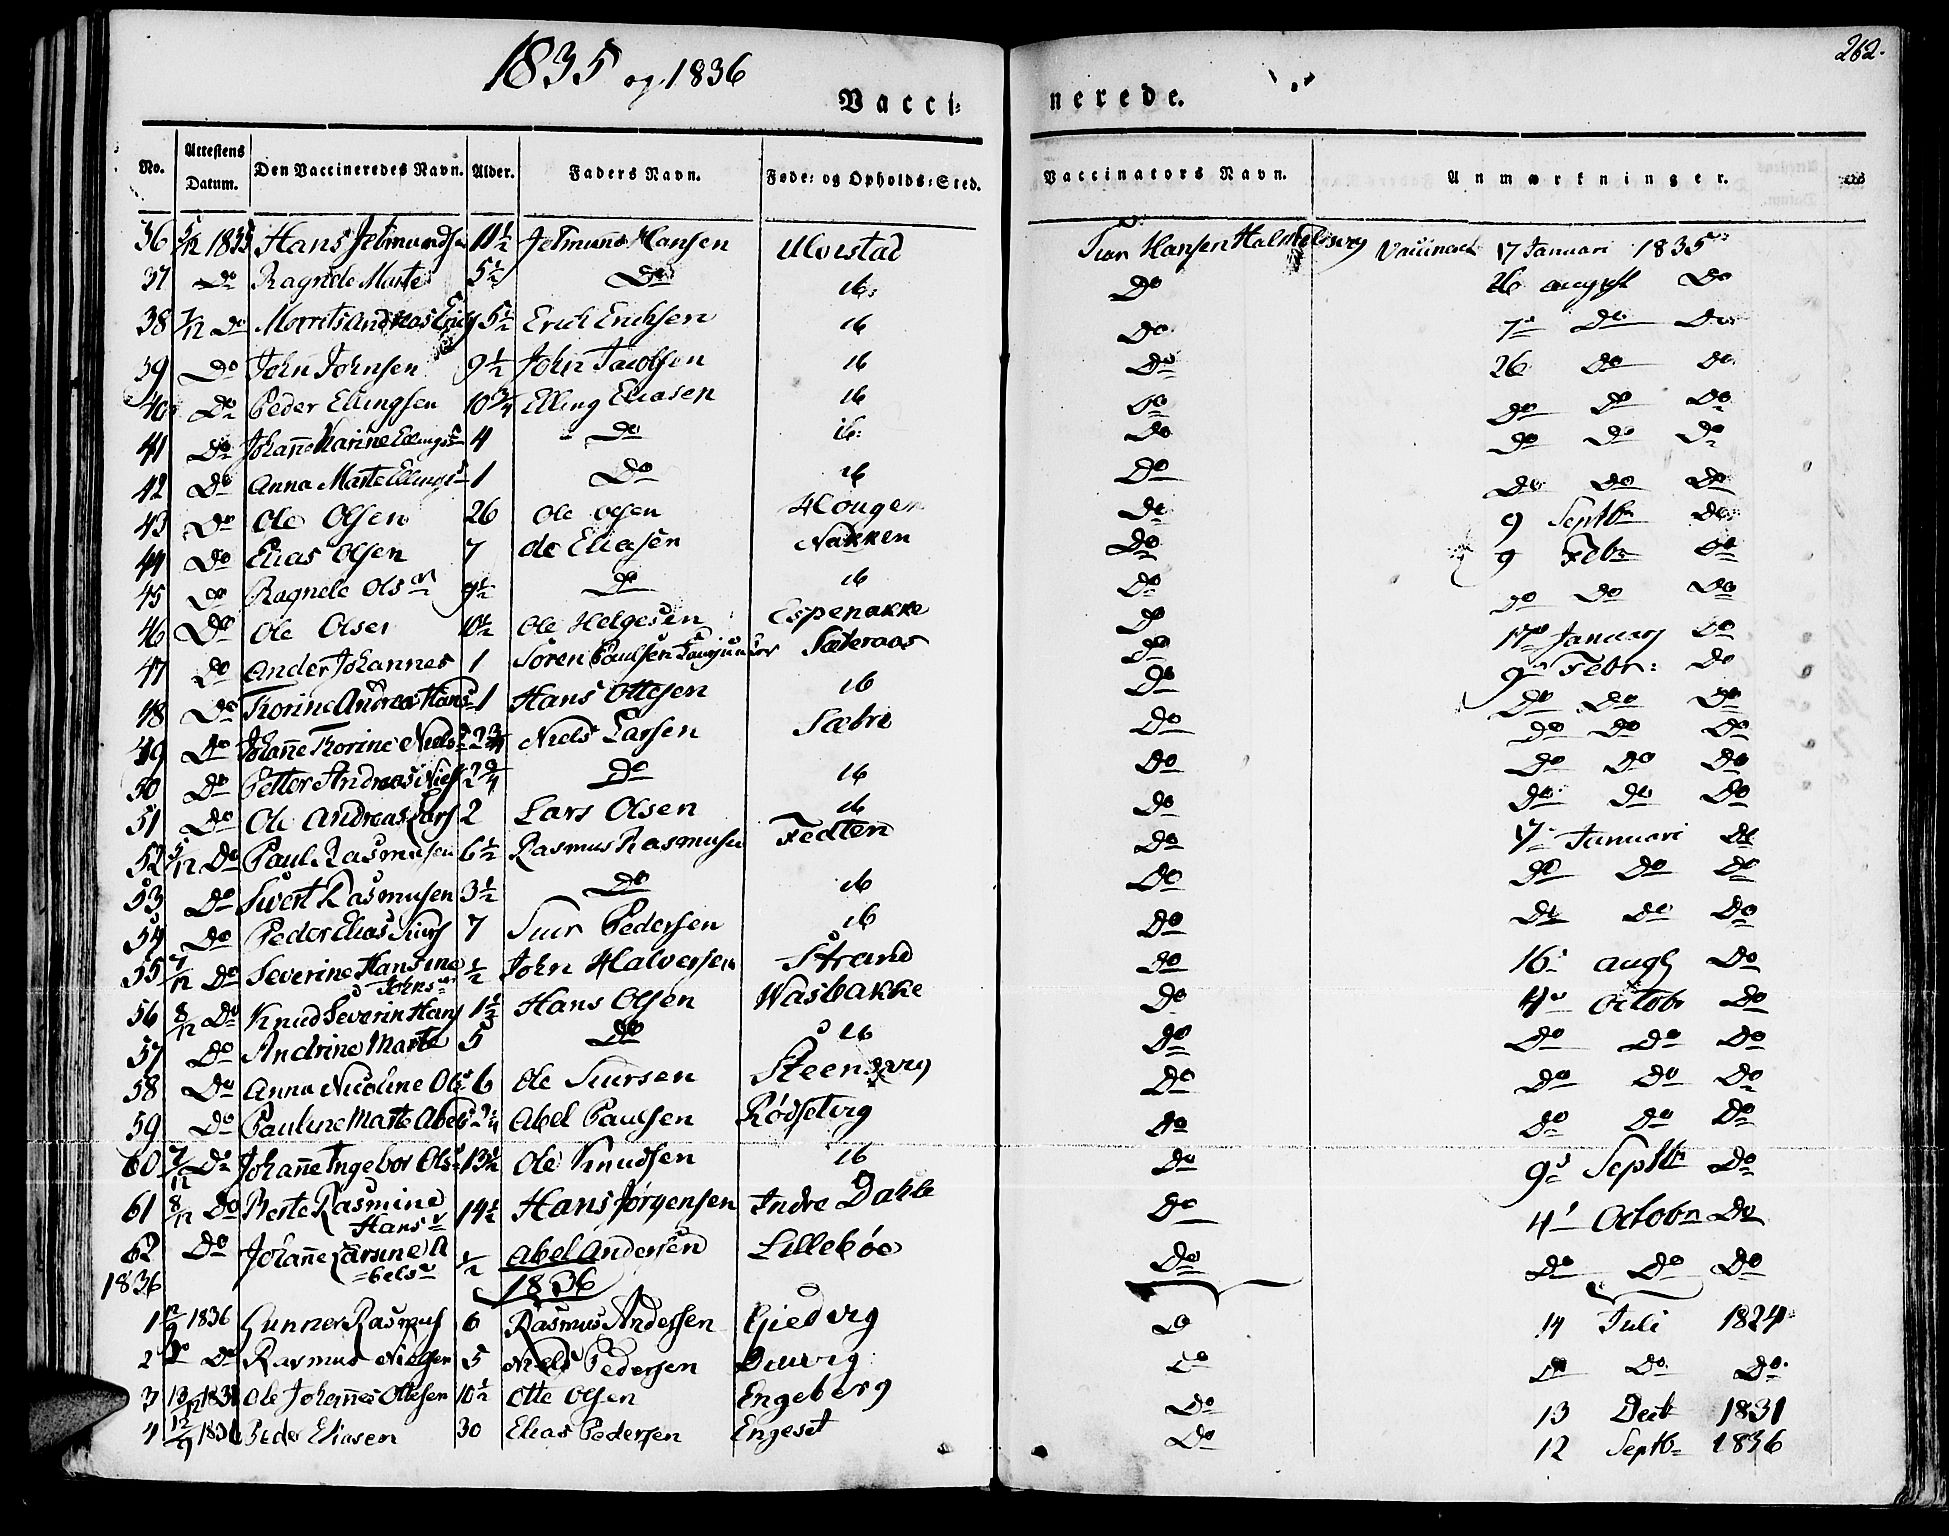 262.
1835 og 1836
Vacci: nerede.
No. | Attestens Datum. | Den Vaccineredes Navn. | Alder. | Faders Navn. | Føde: og Opholds:Sted. | Vaccinators Navn. | Anmærkninger.
36 | 5/12 1835 | Hans Jetmundsen | 11 1/2 | Jetmund Hansen | Ulvestad | Hansen | Vaccineret 17 Januari 1835
37 | Do | Ragnele Marte | 5 1/2 | Do | ib: | Do | 26 august Do
38 | 7/12 Do | Morrits Andreas | 5 1/2 | Erich Erichsen | ib | Do | 7 Do Do
39 | Do | John Johnsen | 9 1/2 | John Jacobsen | ib | Do | 26 Do Do
40 | Do | Peder Ellingsen | 10 3/4 | Elling Eliasen | ib | Do | Do Do Do
41 | Do | Johanne Karine Ellings | 4 | Do | ib: | Do | Do Do Do
42 | Do | Anna Marte Ellings | 1 | Do | ib | Do | Do Do Do
43 | Do | Ole Olsen | 26 | Ole Olsen | Hougen | Do | 9 Septbr Do
44 | Do | Elias Olsen | 7 | Ole Eliasen | Nakken | Do | 9 Febr Do
45 | Do | Ragnele Ols | 9 1/2 | Do | ib | Do | Do Do Do
46 | Do | Ole Olsen | 10 1/2 | Ole Helgesen | Espenakke | Do | 17 January Do
47 | Do | Ander Johannes | 1 | Søren Paulsen | Sæteraas | Do | 9 Febr: Do
48 | Do | Thorine Andrea Hans | 1 | Hans Ottesen | ib | Do | Do Do Do
49 | Do | Johanne Thorine Niels | 2 3/4 | Niels Larsen | Sæbre | Do | Do Do Do
50 | Do | Petter Andreas Niels | 2 3/4 | Do | ib | Do | Do Do Do
51 | Do | Ole Andreas Lars | 2 | Lars Olsen | ib | Do | Do Do Do
52 | 5/12 Do | Paul Rasmusen | 6 1/2 | Rasmus Rasmusen | Fedten | Do | 17 Januari Do
53 | Do | Sivert Rasmusen | 3 1/2 | Do | ib | Do | Do Do Do
54 | Do | Peder Elias Siurs | 7 | Siur Pedersen | ib | Do | Do Do Do
55 | 7/12 Do | Severine Hansine Johns | 1/2 | John Halversen | Strand | Do | 16 aug Do
56 | 8/12 Do | Knud Severin Hans | 1 1/2 | Hans Olsen | Wasbakke | Do | 4 Octobr Do
57 | Do | Andrine Marte | 5 | Do | ib | Do | Do Do Do
58 | Do | Anna Nicoline Ols | 6 | Ole Siursen | | Do | Do Do Do
59 | Do | Pauline Marte Abels | | Abel Paulsen | Rødsetvig | Do | Do Do Do
60 | 7/12 Do | Johanne Ingebor Ols | 13 1/2 | Ole Knudsen | ib | Do | 9 Septbr Do
61 | 8/12 Do | Berte Rasmine Hans | 14 1/2 | Hans Jørgensen | Indre Dahle | Do | 4 Octobr Do
62 | Do | Johanne Larsine Abels | 1/2 | Abel Andersen | Lillebøe | Do | Do Do Do
1836 | 1836
1 | 12/9 1836 | Gunner Rasmus | 6 | Rasmus Andersen | Gjedvig | Do | 14 Juli 1824
2 | Do Do | Rasmus Nielsen | 5 | Niels Pedersen | | Do | Do Do Do
3 | 13/12 1831 | Ole Johannes Ottesen | 10 1/2 | Otte Olsen | Engeberg | Do | 13 Decb 1831
4 | 12/9 1836 | Peder Eliasen | 30 | Elias Pedersen | Engeset | Do | 12 Septbr 1836